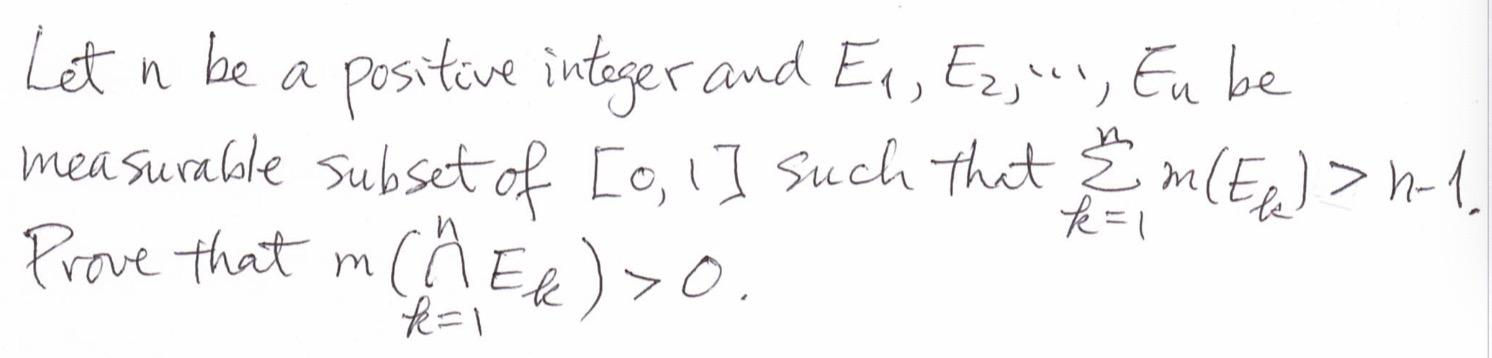 Let n be a positive integer and E₁, E₂, ..., Eₙ be
measurable subset of [0, 1] such that \sum_{k=1}^{n} m(E_k) > n-1.
Prove that m(\bigcap_{k=1}^{n} E_k) > 0.